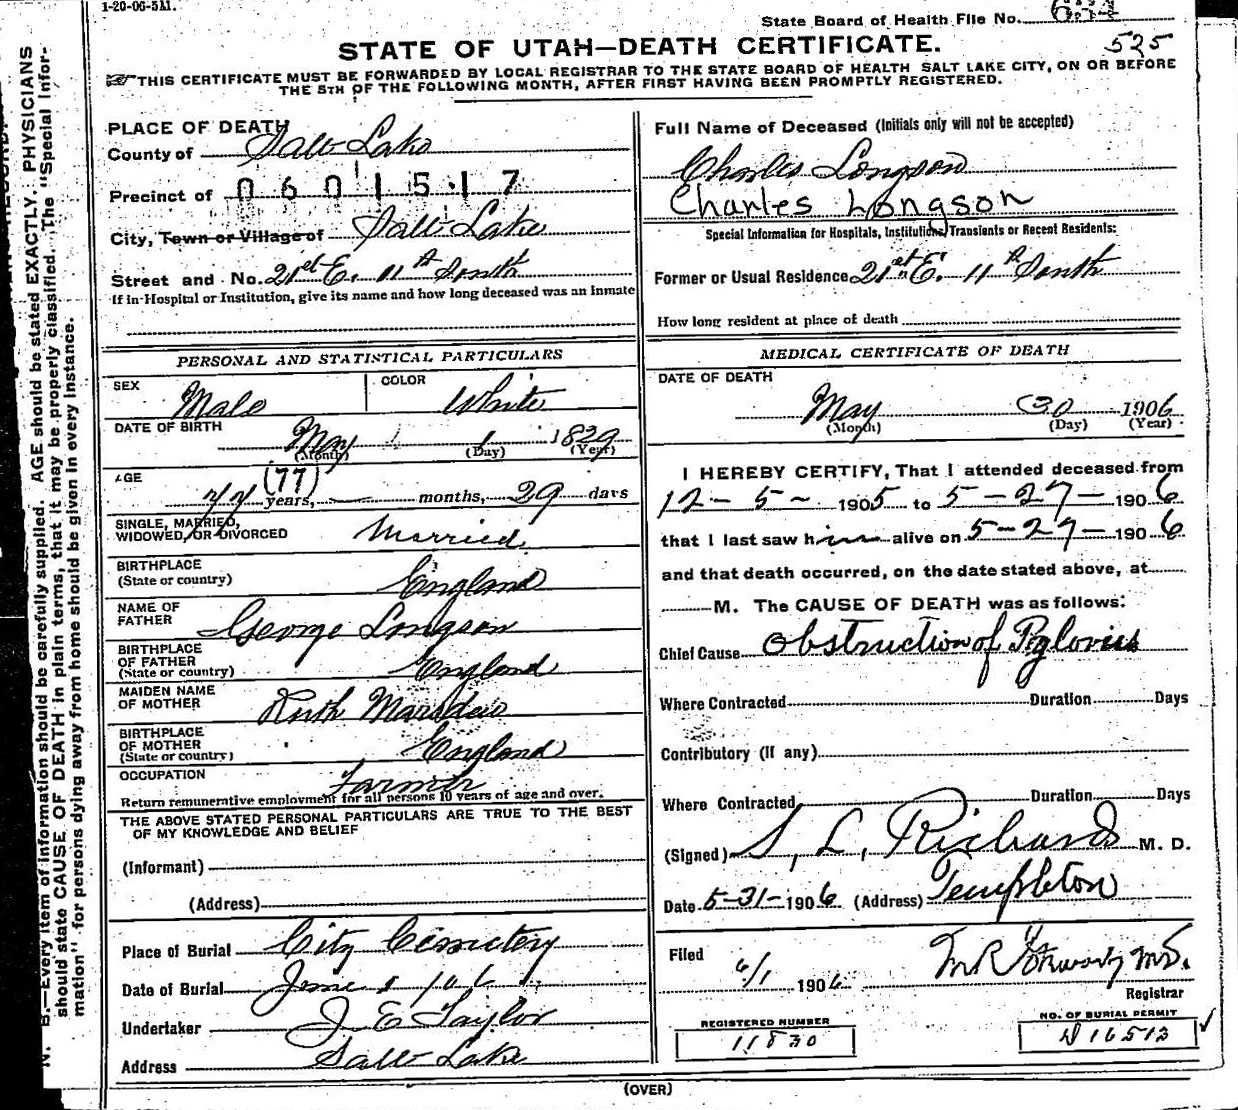 1-20-06-5M.
State Board of Health File No.
STATE OF UTAH—DEATH CERTIFICATE.
525
THIS CERTIFICATE MUST BE FORWARDED BY LOCAL REGISTRAR TO THE STATE BOARD OF HEALTH SALT LAKE CITY, ON OR BEFORE
THE 5TH OF THE FOLLOWING MONTH, AFTER FIRST HAVING BEEN PROMPTLY REGISTERED.
N. B.—Every item of information should be carefully supplied. AGE should be stated EXACTLY. PHYSICIANS
should state CAUSE OF DEATH in plain terms, that it may be properly classified. The "Special Infor-
mation" for persons dying away from home should be given in every instance.
PLACE OF DEATH
County of Salt Lake
Precinct of 0601517
City, Town or Village of Salt Lake
Street and No. 21st E. 11th South
If in Hospital or Institution, give its name and how long deceased was an inmate
PERSONAL AND STATISTICAL PARTICULARS
SEX Male COLOR White
DATE OF BIRTH May 1 1829
(Month) (Day) (Year)
AGE 77 (77) years, — months, 29 days
SINGLE, MARRIED,
WIDOWED, OR DIVORCED Married
BIRTHPLACE
(State or country) England
NAME OF
FATHER George Longson
BIRTHPLACE
OF FATHER
(State or country) England
MAIDEN NAME
OF MOTHER Ruth
BIRTHPLACE
OF MOTHER
(State or country) England
OCCUPATION Farmer
Return remunerative employment for all persons 10 years of age and over.
THE ABOVE STATED PERSONAL PARTICULARS ARE TRUE TO THE BEST
OF MY KNOWLEDGE AND BELIEF
(Informant)
(Address)
Place of Burial City Cemetery
Date of Burial June 1 06
Undertaker J E Taylor
Address Salt Lake
Full Name of Deceased (Initials only will not be accepted)
Charles Longson
Charles Longson
Special Information for Hospitals, Institutions, Transients or Recent Residents:
Former or Usual Residence 21st E. 11th South
How long resident at place of death
MEDICAL CERTIFICATE OF DEATH
DATE OF DEATH
May 30 1906
(Month) (Day) (Year)
I HEREBY CERTIFY, That I attended deceased from
12-5- 1905 to 5-27- 1906
that I last saw him alive on 5-27- 1906
and that death occurred, on the date stated above, at
M. The CAUSE OF DEATH was as follows:
Chief Cause Obstruction of Pylorus
Where Contracted Duration Days
Contributory (If any)
Where Contracted Duration Days
(Signed) S. L. Richards M. D.
Date 5-31-1906 (Address) Templeton
Filed
6/1 1906
Registrar
REGISTERED NUMBER
11830
NO. OF BURIAL PERMIT
16513
(OVER)